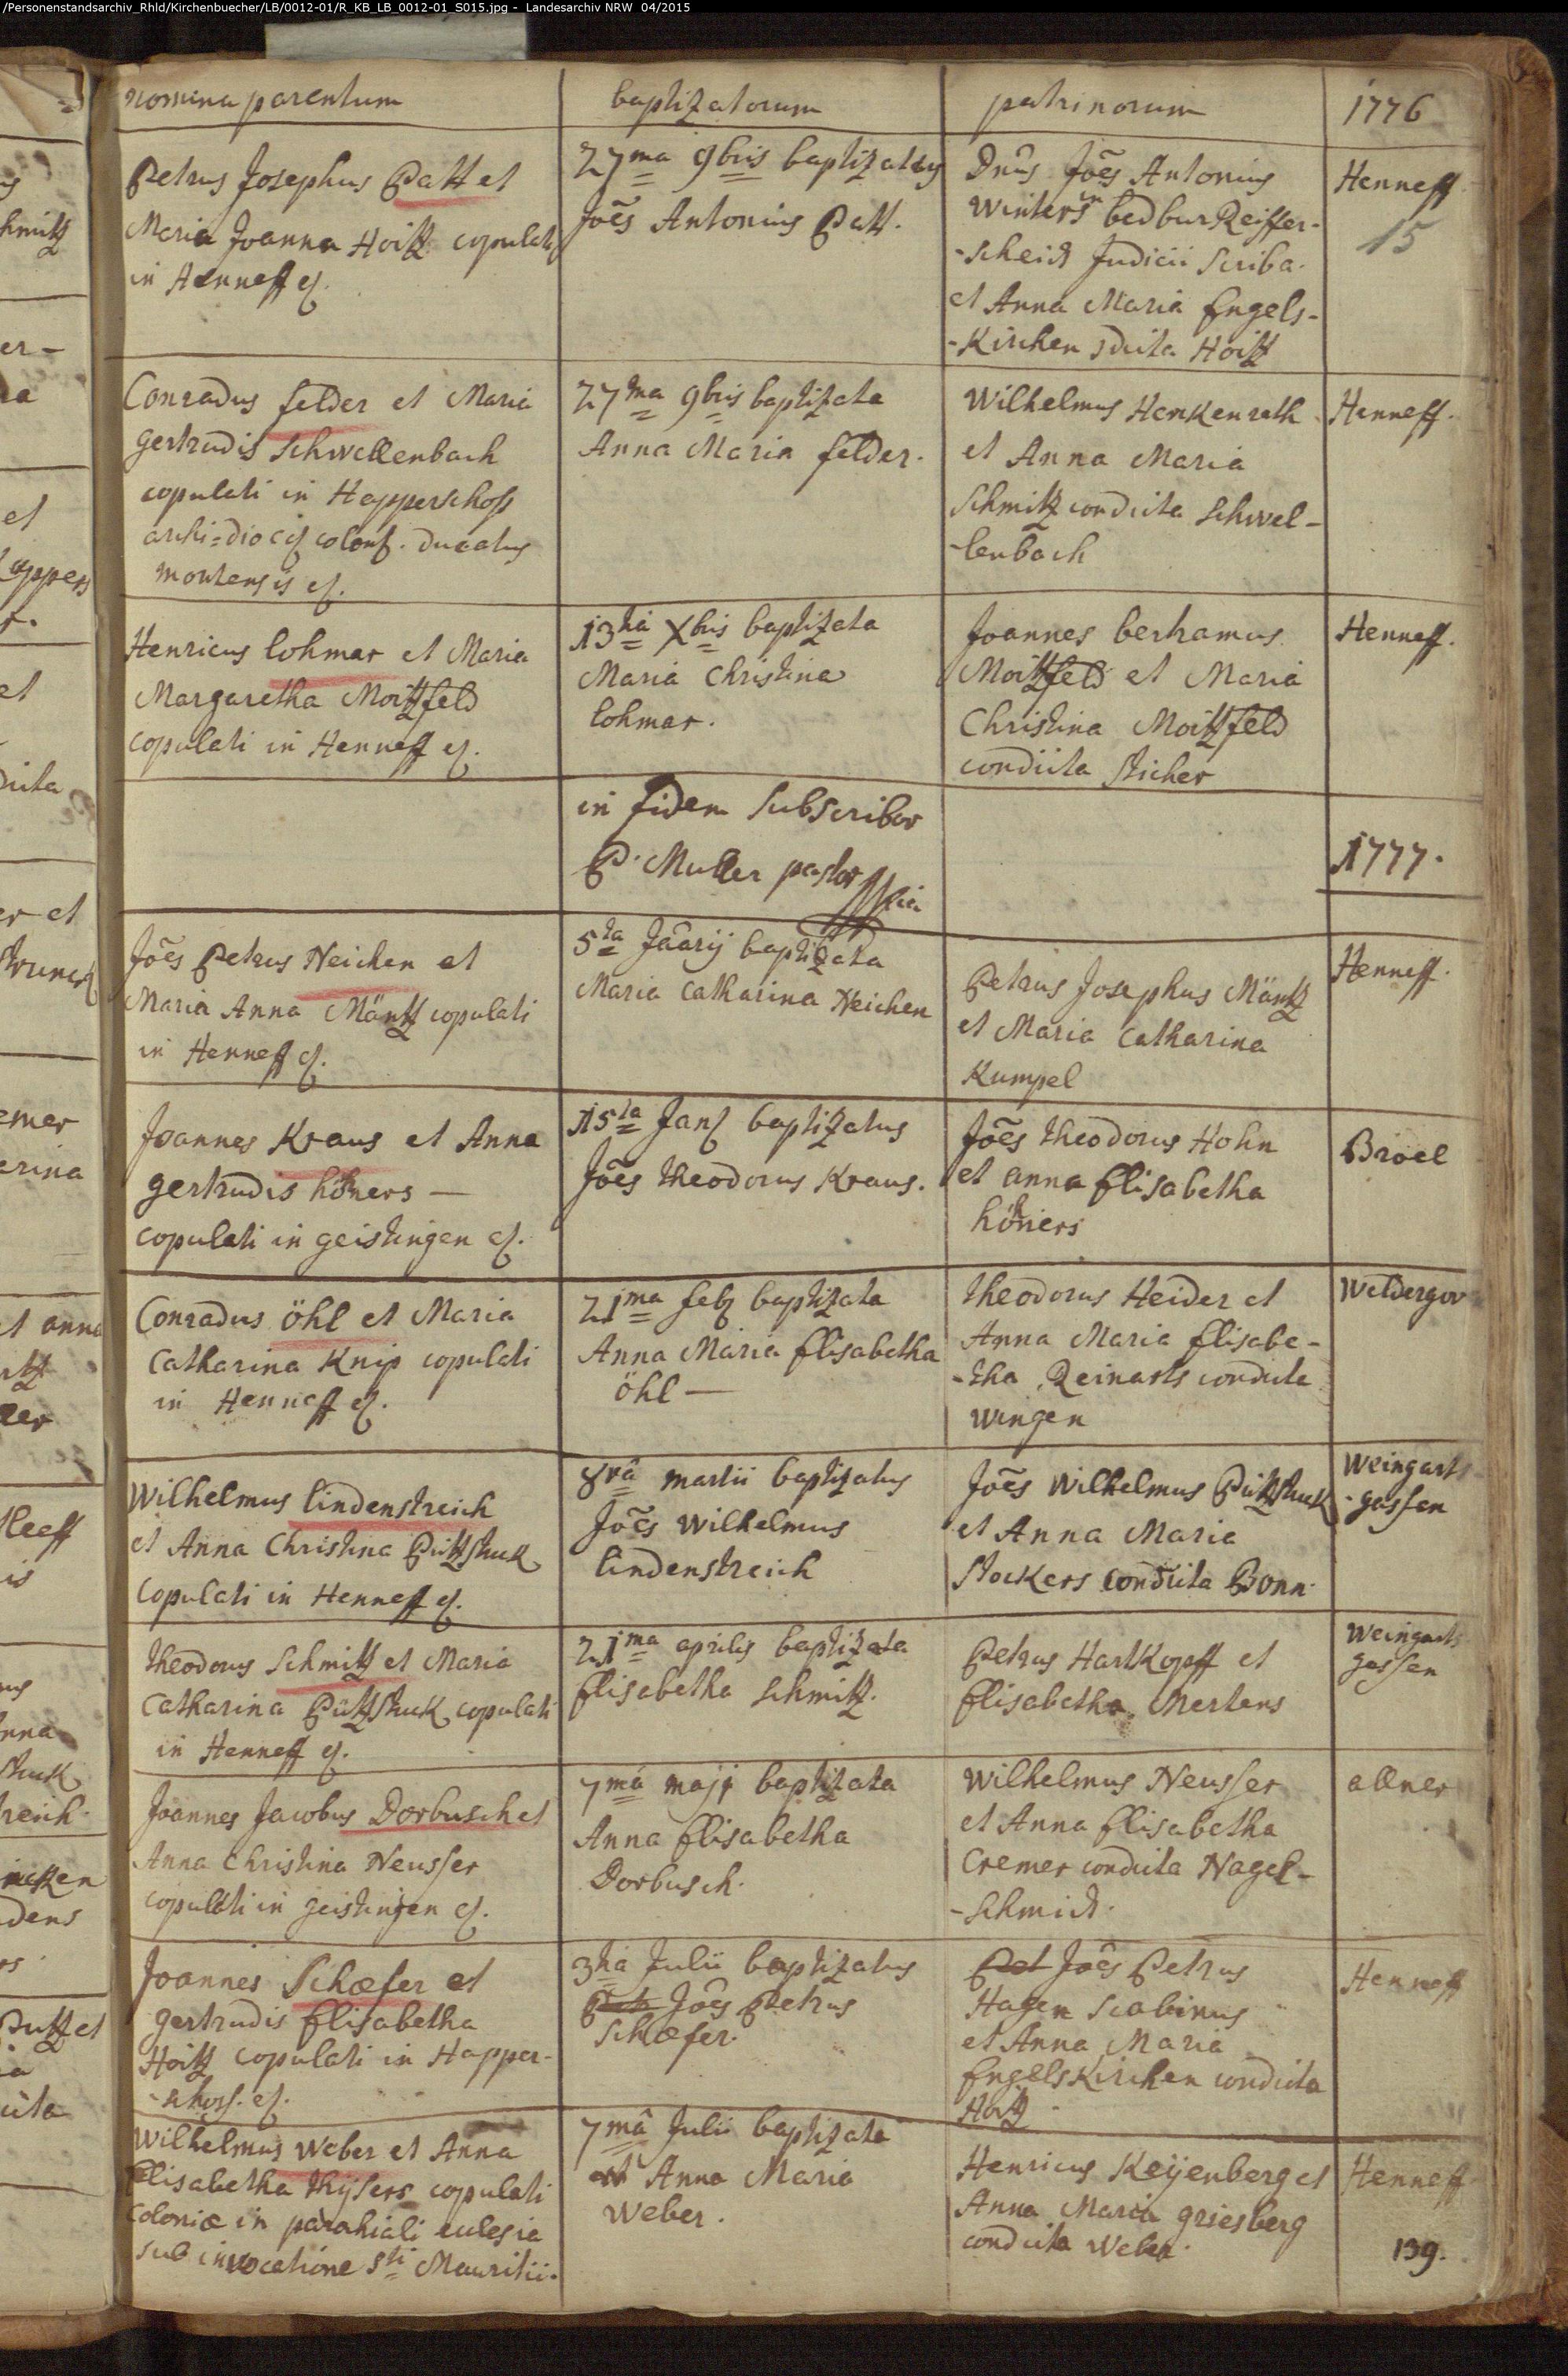 /Personenstandsarchiv_Rhld/Kirchenbuecher/LB/0012-01/R_KB_LB_0012-01_S015.jpg - Landesarchiv NRW 04/2015
nomina parentum
baptizatorum
patrinorum
1776
Petrus Josephus Patt et
Maria Joanna Hoitz copulati
in Henneff
27ma 9bris baptizatus
Joes Antonius Patt.
Dnus Joes Antonius
Winters in bedbur Reiffer-
-scheid Judicii Scriba.
et Anna Maria Engels-
-Kirchen dicta Hoitz
Henneff
15
Conradus felder et Maria
gertrudis Schwellenbach
copulati in Happerschoss
archi-diocs colons. Ducatus
montensis
27ma 9bris baptizata
Anna Maria felder.
Wilhelmus Henkenrath
et Anna Maria
Schmitz condicta Schwel-
-lenbach
Henneff.
Henricus lohmar et Maria
Margaretha Moitzfeld
copulati in Henneff
13tia Xbris baptizata
Maria Christina
lohmar.
Joannes bertramus
Moitzfeld et Maria
Christina Moitzfeld
condicta Sticher
Henneff.
in fidem subscribor
P. Muller pastor
1777.
Joes Petrus Neichen et
Maria Anna Mäntz copulati
in Henneff
5ta Jaarij baptizata
Maria Catharina Neichen
Petrus Josephus Mäntz
et Maria Catharina
Kumpel
Henneff.
Joannes Kraus et Anna
gertrudis höhners —
copulati in geistingen
15ta Jan baptizatus
Joes theodorus Kraus.
Joes theodorus Hohn
et anna Elisabetha
höhners
Bröel
Conradus öhl et Maria
Catharina Knip copulati
in Henneff
21ma feb baptizata
Anna Maria Elisabetha
öhl —
theodorus Heider et
Anna Maria Elisabe-
-tha Reinarts condicta
Wingen
Weldergov
Wilhelmus lindenstreich
et Anna Christina Pützstuck
copulati in Henneff
8va martii baptizatus
Joes Wilhelmus
lindenstreich
Joes Wilhelmus Pützstuck
et Anna Maria
Stockers condicta Bonn.
Weingarts
-gassen
theodorus Schmitz et Maria
Catharina Pützstuck copulati
in Henneff
21ma aprilis baptizata
Elisabetha Schmitz.
Petrus Hartkopff et
Elisabetha Mertens
Weingarts
gassen
Joannes Jacobus Dorbusch et
Anna Christina Neusser
copulati in geistingen
7ma maji baptizata
Anna Elisabetha
Dorbusch.
Wilhelmus Neusser
et Anna Elisabetha
Cremer condicta Nagel-
-schmidt.
allner
Joannes Schæfer et
gertrudis Elisabetha
Hoitz copulati in Happer-
-schoss.
3tia Julii baptizatus
Pet Joes Petrus
Schæfer.
Pet Joes Petrus
Hagen Scabinus
et Anna Maria
Engelskirchen condicta
Hoitz
Henneff
Wilhelmus Weber et Anna
Elisabetha thijsers copulati
Coloniæ in parochiali ecclesia
sub invocatione Sti Mauritii.
7ma Julii baptizata
Anna Maria
Weber.
Henricus Keijenberg et
Anna Maria griesberg
condicta Weber.
Henneff
139.